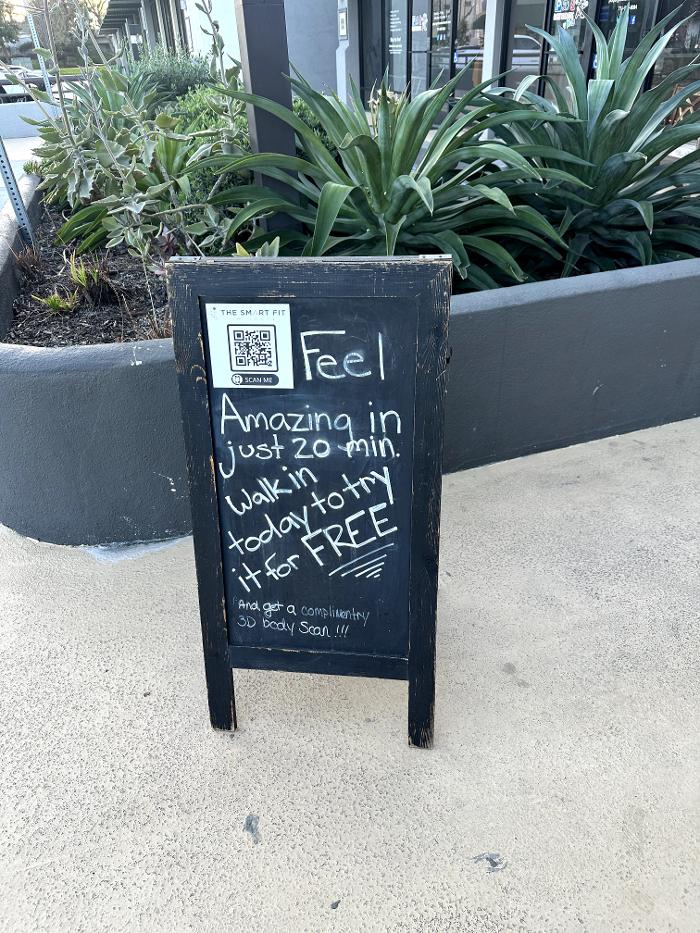 THE SMART FIT
SCAN ME
Feel
Amazing in
just 20 min.
Walk in
today to try
it for FREE
And get a complimentry
3D body Scan !!!